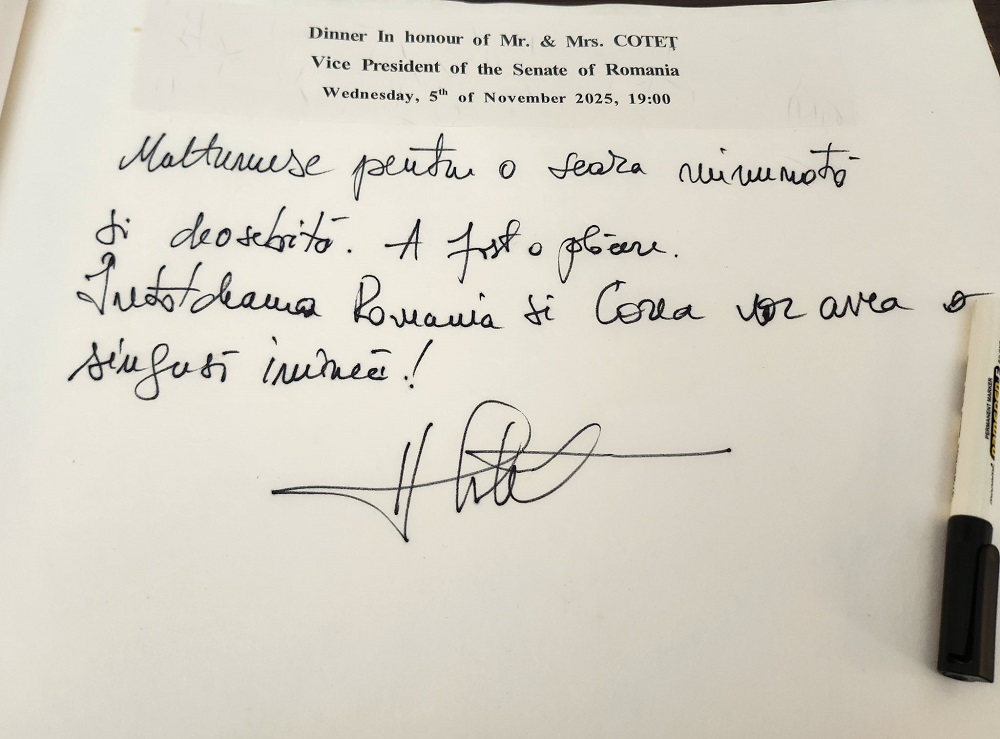 Dinner In honour of Mr. & Mrs. COTEȚ
Vice President of the Senate of Romania
Wednesday, 5th of November 2025, 19:00
Multumesc pentru o seara minunată
și deosebită. A fost o plăcere.
Întotdeauna Romania si Corea vor avea o
singură inimă!
PERMANENT MARKER